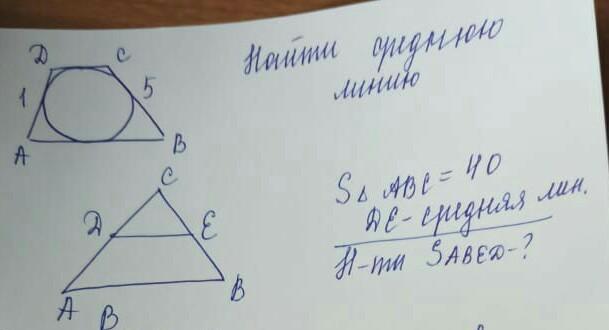 D C
1 5
A B
Найти среднюю
линию
C
D E
A B
B
S△ ABC = 40
DE - средняя лин.
Н-ти SABED-?